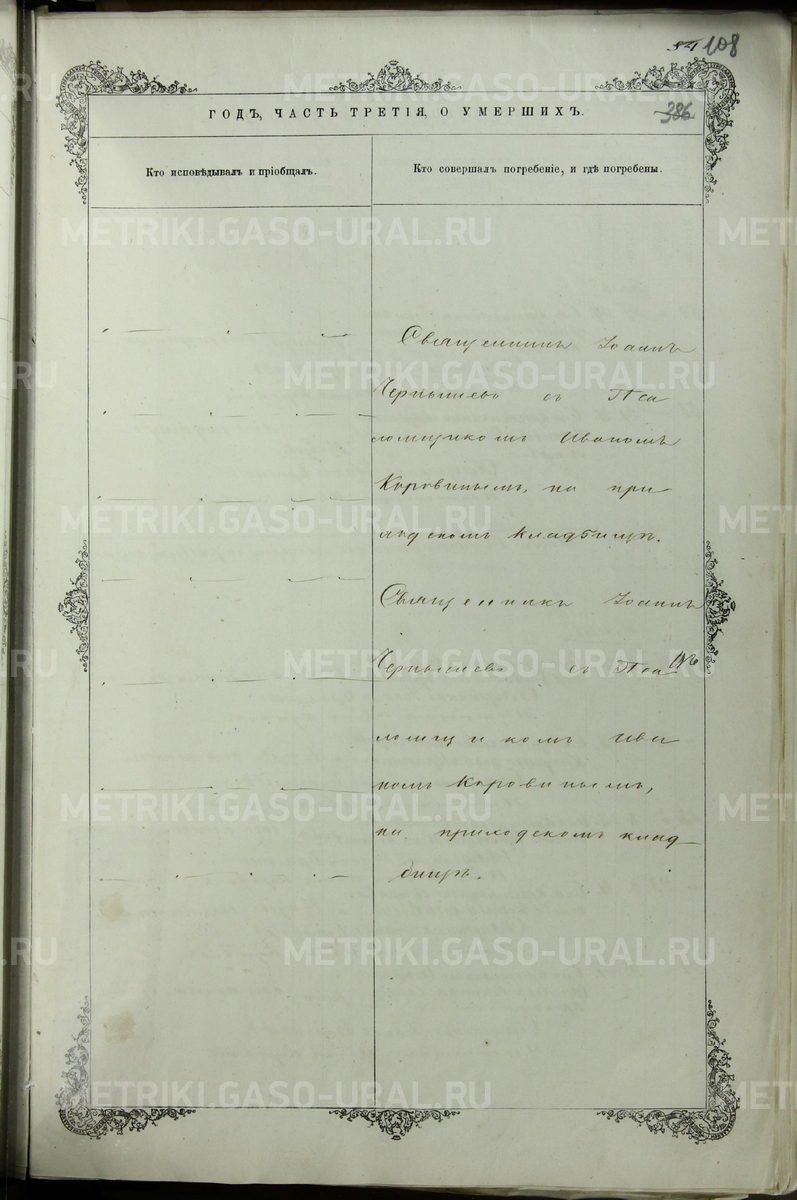 108
386
ГОДЪ, ЧАСТЬ ТРЕТІЯ, О УМЕРШИХЪ.
Кто исповѣдывалъ и пріобщалъ.
Кто совершалъ погребеніе, и гдѣ погребены.
Священникъ Іоаннъ
Чернышевъ съ Пса
ломщикомъ Иваномъ
Коровинымъ, на при
ходскомъ кладбищѣ.
Священникъ Іоаннъ
Чернышевъ съ Пса
ломщикомъ Ива
номъ Коровинымъ,
на приходскомъ клад
бищѣ.
METRIKI.GASO-URAL.RU